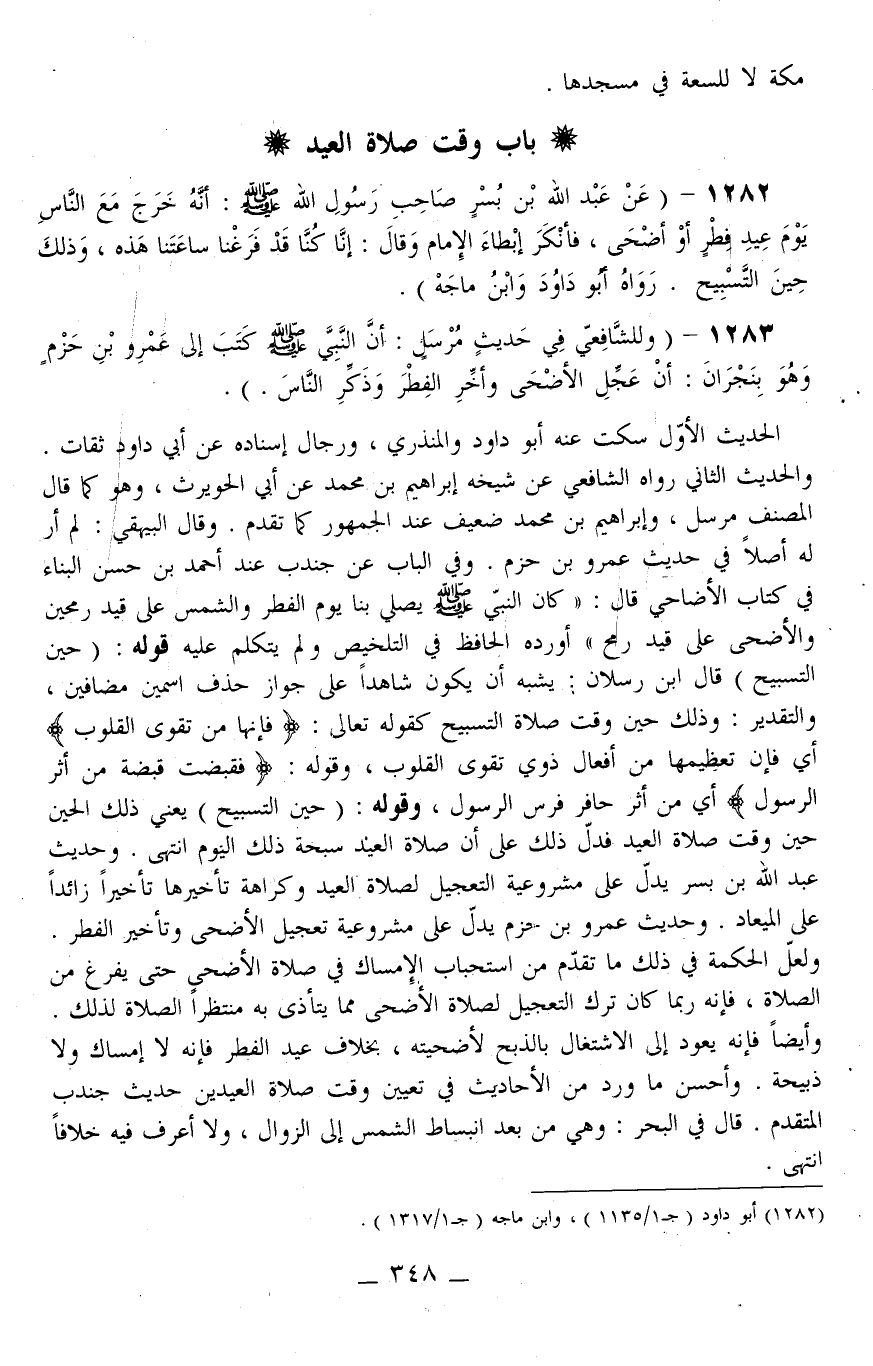 مكة لا للسعة في مسجدها .
باب وقت صلاة العيد
١٢٨٢ – ( عَنْ عَبْد الله بْن بُسْرٍ صَاحِبِ رَسُولِ الله ﷺ : أَنَّهُ خَرَجَ مَعَ النَّاسِ
يَوْمَ عِيدِ فِطْرٍ أَوْ أَضْحَى ، فَأَنْكَرَ إبْطاءَ الإمام وَقالَ : إنَّا كُنَّا قَدْ فَرَغْنا ساعَتَنا هَذه ، وَذلكَ
حِينَ التَّسْبِيح . رَوَاهُ أَبُو دَاوُدَ وَابْنُ ماجَهْ ) .
١٢٨٣ – ( وللشَّافِعيّ فِي حَديثٍ مُرْسَلٍ : أنَّ النَّبِيَّ ﷺ كَتَبَ إلى عَمْرِو بْنِ حَزْمٍ
وَهُوَ بِنَجْرَانَ : أنْ عَجِّلِ الأضْحَى وأخِّرِ الفِطْرَ وَذَكِّرِ النَّاسَ . ) .
الحديث الأوّل سكت عنه أبو داود والمنذري ، ورجال إسناده عن أبي داود ثقات .
والحديث الثاني رواه الشافعي عن شيخه إبراهيم بن محمد عن أبي الحويرث ، وهو كما قال
المصنف مرسل ، وإبراهيم بن محمد ضعيف عند الجمهور كما تقدم . وقال البيهقي : لم أر
له أصلاً في حديث عمرو بن حزم . وفي الباب عن جندب عند أحمد بن حسن البناء
في كتاب الأضاحي قال : « كان النبيّ ﷺ يصلي بنا يوم الفطر والشمس على قيد رمحين
والأضحى على قيد رمح » أورده الحافظ في التلخيص ولم يتكلم عليه قوله : ( حين
التسبيح ) قال ابن رسلان : يشبه أن يكون شاهداً على جواز حذف اسمين مضافين ،
والتقدير : وذلك حين وقت صلاة التسبيح كقوله تعالى : ﴿ فإنها من تقوى القلوب ﴾
أي فإن تعظيمها من أفعال ذوي تقوى القلوب ، وقوله : ﴿ فقبضت قبضة من أثر
الرسول ﴾ أي من أثر حافر فرس الرسول ، وقوله : ( حين التسبيح ) يعني ذلك الحين
حين وقت صلاة العيد فدلّ ذلك على أن صلاة العيد سبحة ذلك اليوم انتهى . وحديث
عبد الله بن بسر يدلّ على مشروعية التعجيل لصلاة العيد وكراهة تأخيرها تأخيراً زائداً
على الميعاد . وحديث عمرو بن حزم يدلّ على مشروعية تعجيل الأضحى وتأخير الفطر .
ولعلّ الحكمة في ذلك ما تقدّم من استحباب الإمساك في صلاة الأضحى حتى يفرغ من
الصلاة ، فإنه ربما كان ترك التعجيل لصلاة الأضحى مما يتأذى به منتظراً الصلاة لذلك .
وأيضاً فإنه يعود إلى الاشتغال بالذبح لأضحيته ، بخلاف عيد الفطر فإنه لا إمساك ولا
ذبيحة . وأحسن ما ورد من الأحاديث في تعيين وقت صلاة العيدين حديث جندب
المتقدم . قال في البحر : وهي من بعد انبساط الشمس إلى الزوال ، ولا أعرف فيه خلافاً
انتهى .
(١٢٨٢) أبو داود ( جـ١/١١٣٥ ) ، وابن ماجه ( جـ١/١٣١٧ ) .
– ٣٤٨ –